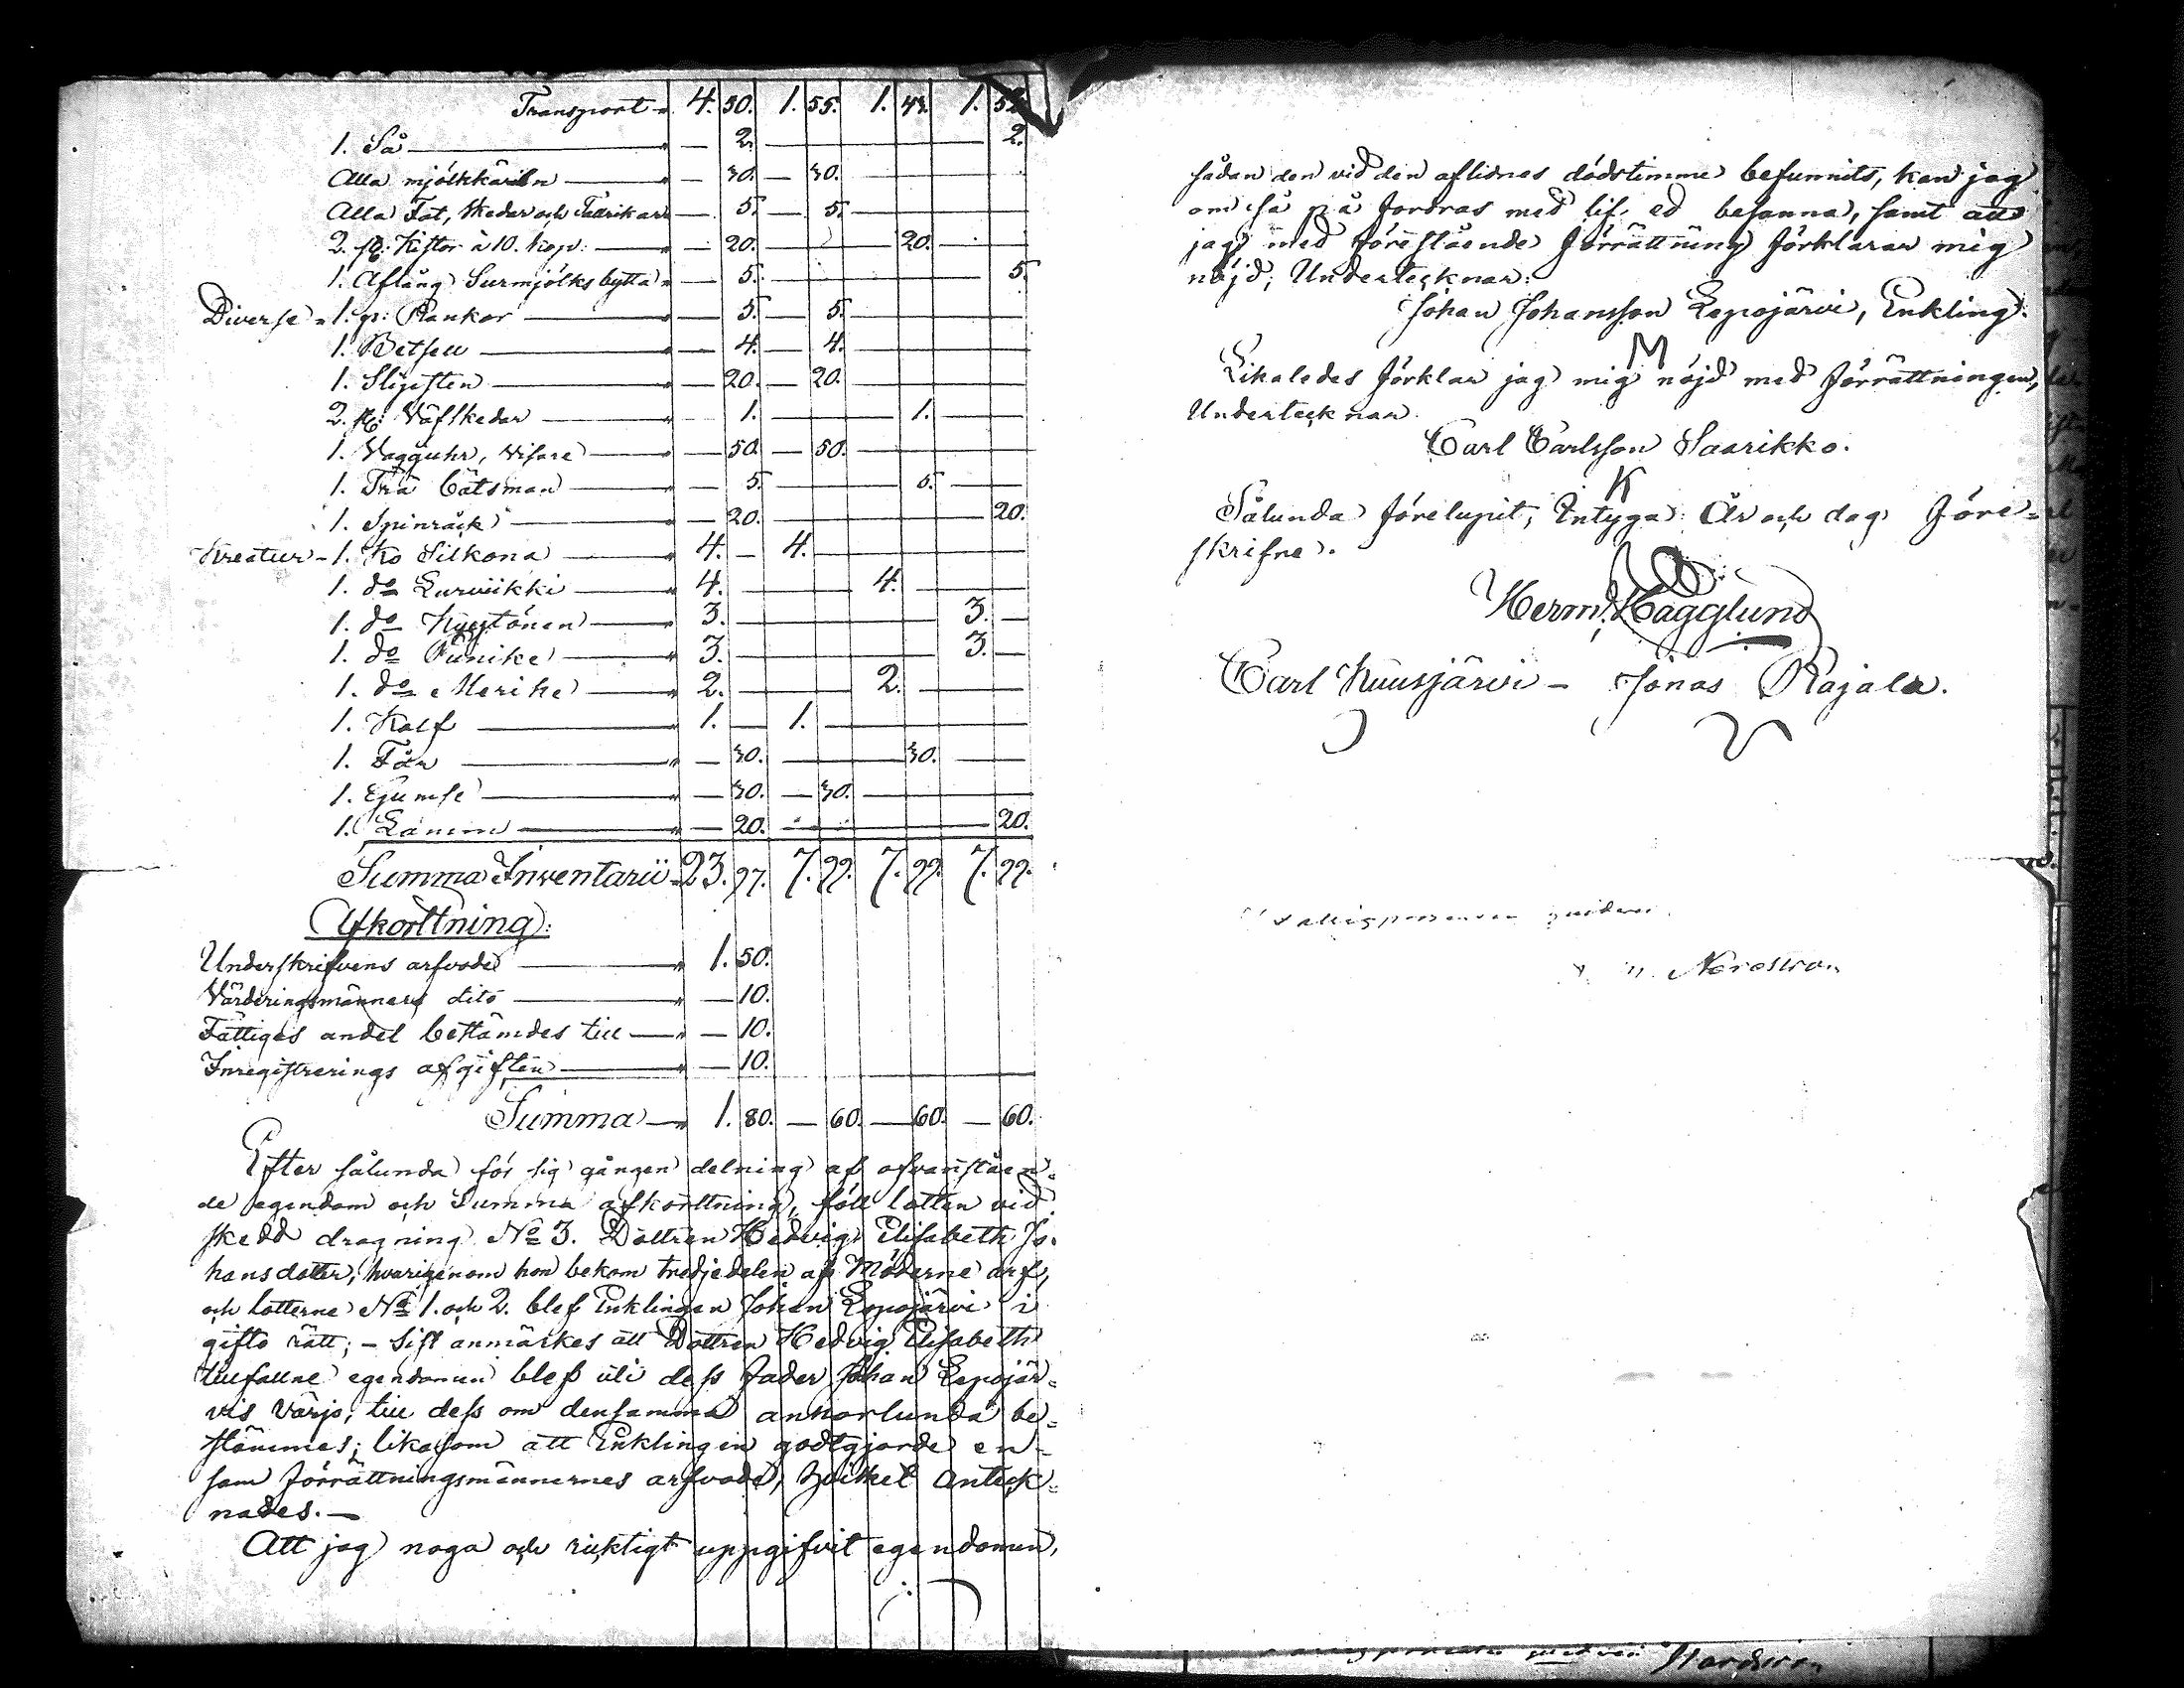 Transport " 4. 50. 1. 55. 1. 43. 1. 52.
1. Så " — 2. — 2.
Alla mjölkkäriln " — 30. — 30. —
Alla Fat, Skedar och Tallrikar — 5. — 5. —
2. st: Kistor à 10. kop: — 20. — 20. —
1. Aflång Surmjölks bytta " — 5. — 5.
Diverse " 1. pr: Rankor " — 5. — 5. —
1. Betsell " — 4. — 4. —
1. Slipsten " — 20. — 20. —
2. st: Väfskedar " — 1. — 1. —
1. Vägguhr, Visare " — 50. — 50. —
1. Trä Båtsman " — 5. — 5. —
1. Spinråck " — 20. — 20.
Kreatur - 1. Ko Silkona " 4. — 4. —
1. do Lurviikki " 4. — 4. —
1. do " 3. — 3. —
1. do Punike " 3. — 3. —
1. do Merike " 2. — 2. —
1. Kalf " 1. — 1. —
1. Får " — 30. — 30. —
1. Gumse " — 30. — 30. —
1. Lamm " — 20. — 20.
Summa Inventarii " 23. 97. 7. 99. 7. 99. 7. 99.
Afkorttning:
Underskrifvens arfvode " 1. 50.
Värderingsmänners dito " — 10.
Fattiges andel bestämdes till " — 10.
Inregistrerings afgiften " — 10.
Summa " 1. 80. — 60. — 60. — 60.
Efter sålunda för sig gången delning af ofvanståen=
de egendom och Summa afkorttning, föll lotten vid
skedd dragning No 3. Dottren Hedvig Elisabeth Jo=
hansdotter, hvarigenom hon bekom tredjedelen af Möderne arf,
och lotterne No 1. och 2. blef Enklingen Johan Lepojärvi i
gifto rätt; - Sist anmärkes att Dottren Hedvig Elisabeth
tillfallne egendomen blef uti dess Fader Johan Lepojär=
vis Värjo, till dess om densamma annorlunda be=
stämmes; likasom att Enklingen godtgjorde en=
sam Förrättningsmännernes arfvode, hvilket anteck=
nades. —
Att jag noga och ricktigt uppgifvit egendomen,
sådan den vid den aflidnes dödstimme befunnits, kan jag
om så på fordras med lif. ed besanna, samt att
jag med förestående Förrättning förklarar mig
nöjd; Undertecknar:
Johan Johansson Lepojärvi, Enkling.
M
Likaledes förklar jag mig nöjd med Förrättningen,
Undertecknar
Carl Carlsson Saarikko.
K
Sålunda förelupit, Intyga: År och dag Före=
skrifne.
Herm. Hägglund
Carl Kuusjärvi - Jonas Rajala.